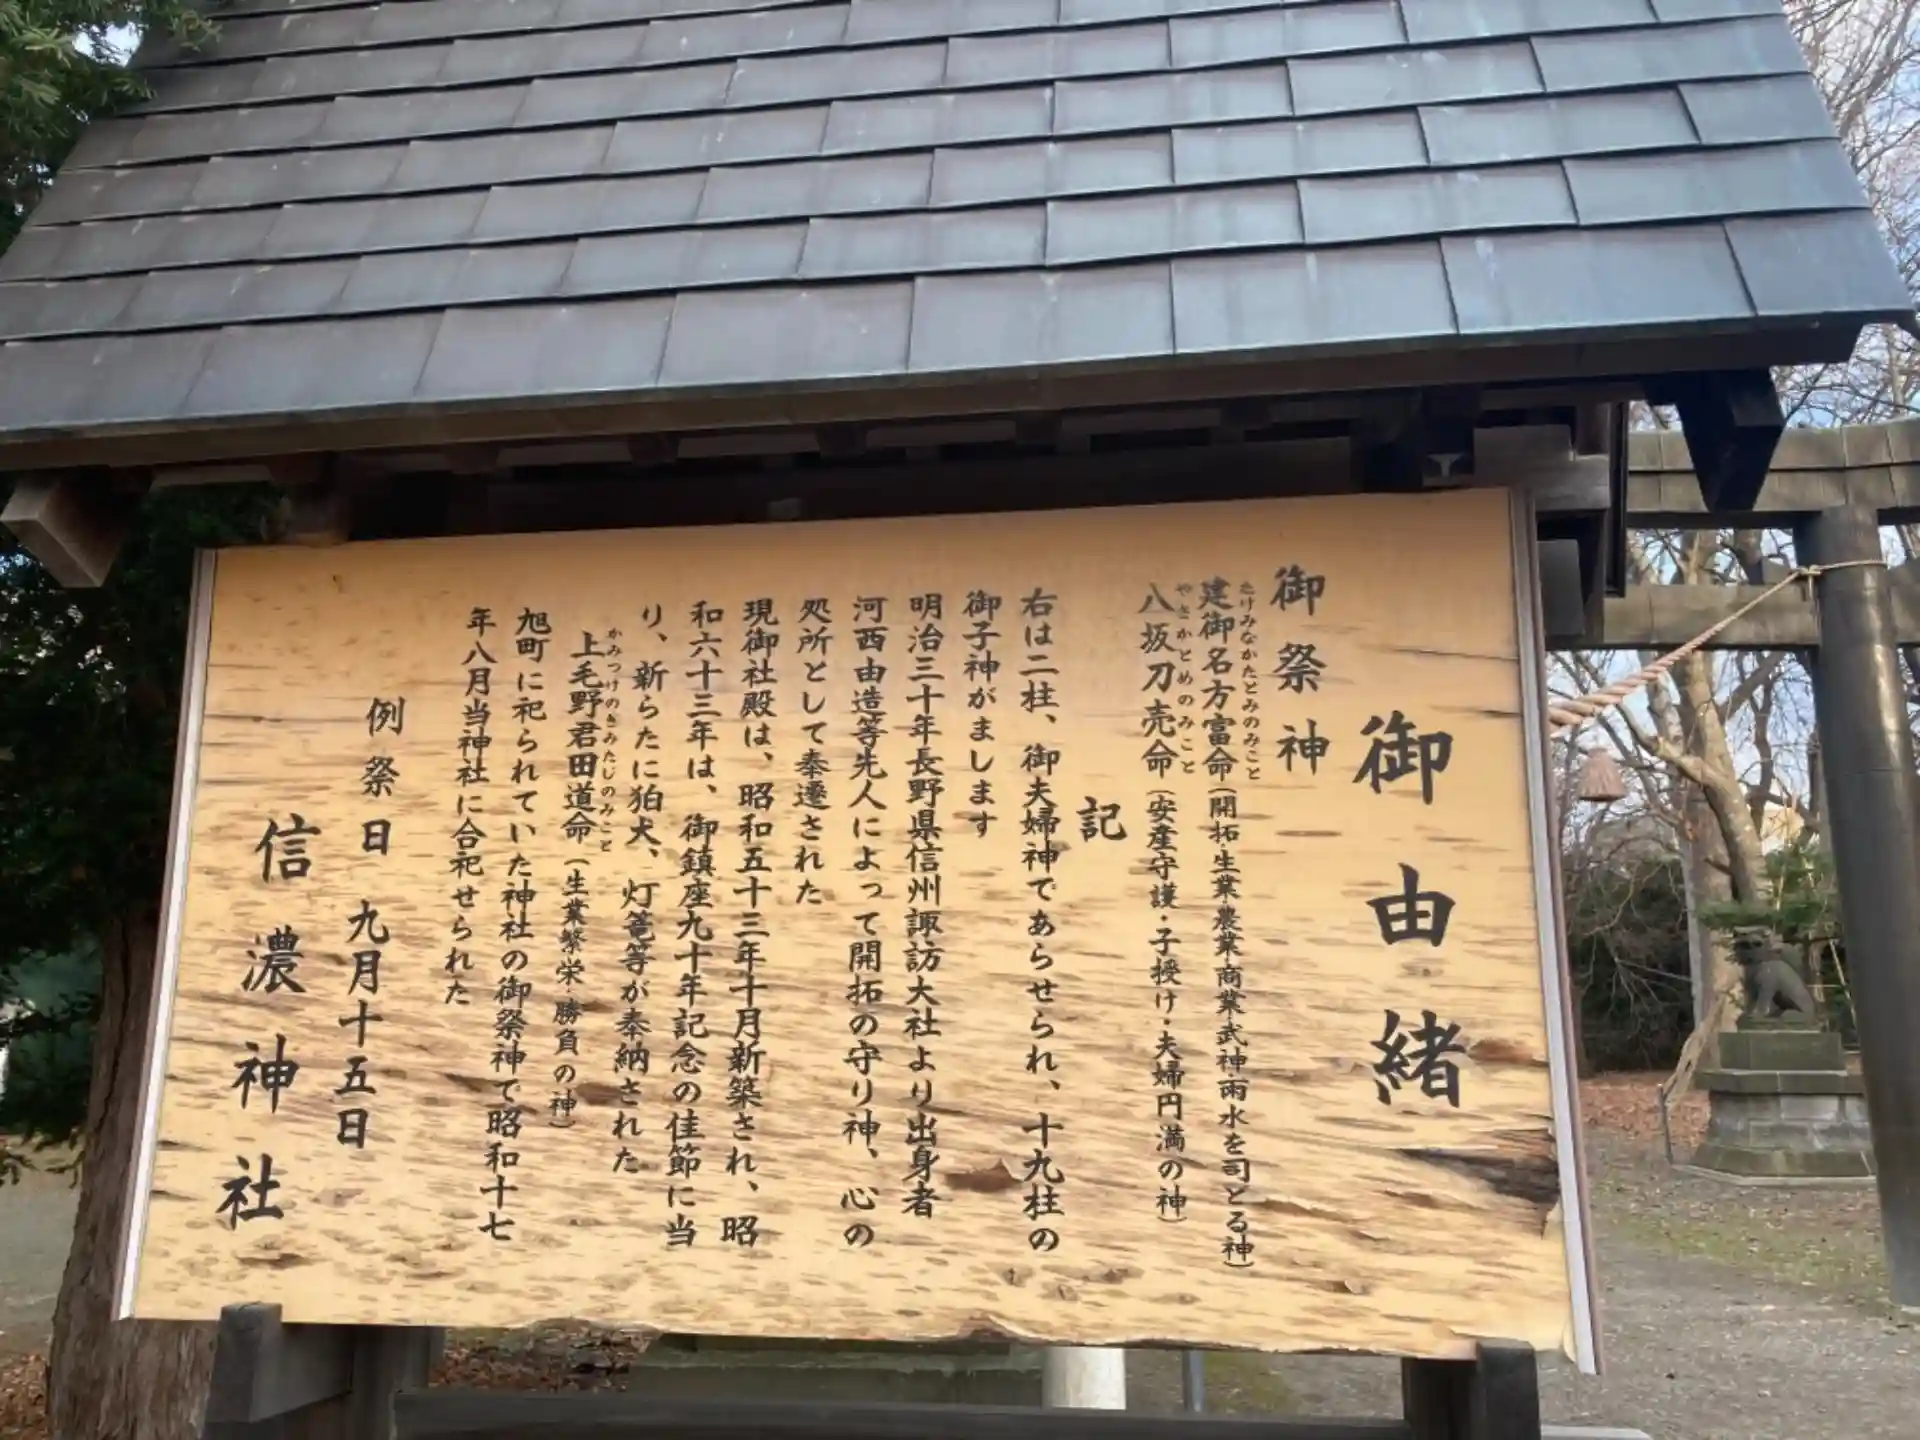 御由緒
御祭神
建御名方富命（開拓・生業農業商業武神・雨水を司どる神）
たけみなかたとみのみこと
八坂刀売命（安産守護・子授け・夫婦円満の神）
やさかとめのみこと
記
右は二柱、御夫婦神であらせられ、十九柱の
御子神がまします
明治三十年長野県信州諏訪大社より出身者
河西由造等先人によって開拓の守り神、心の
処所として奉遷された
現御社殿は、昭和五十三年十月新築され、昭
和六十三年は、御鎮座九十年記念の佳節に当
り、新らたに狛犬、灯篭等が奉納された
上毛野君田道命（生業繁栄・勝負の神）
かみつけのきみたじのみこと
旭町に祀られていた神社の御祭神で昭和十七
年八月当神社に合祀せられた
例祭日 九月十五日
信濃神社